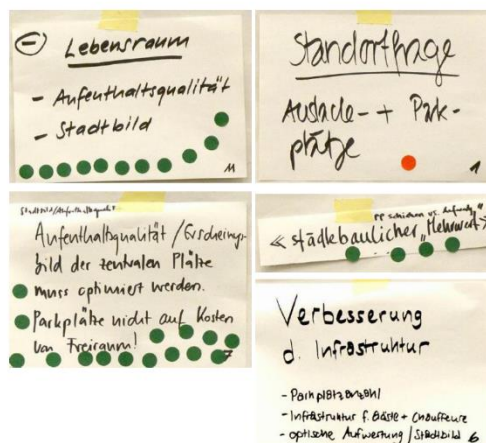 ⊖ Lebensraum
- Aufenthaltsqualität
- Stadtbild
11
Standortfrage
Auslade- + Park-
plätze
1
Stadtbild/Aufenthaltsqualit.
Aufenthaltsqualität/Erscheinungs-
bild der zentralen Plätze
muss optimiert werden.
Parkplätze nicht auf Kosten
von Freiraum!
7
PP schieben vs. Aufwertg.
«städtebaulicher „Mehrwert“»
Verbesserung
d. Infrastruktur
- Parkplatzanzahl
- Infrastruktur f. Gäste + Chauffeure
- optische Aufwertung / Stadtbild 6